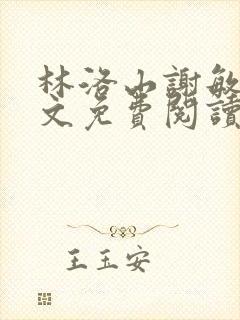 林洛山謝敏
文免費閱讀
王玉安